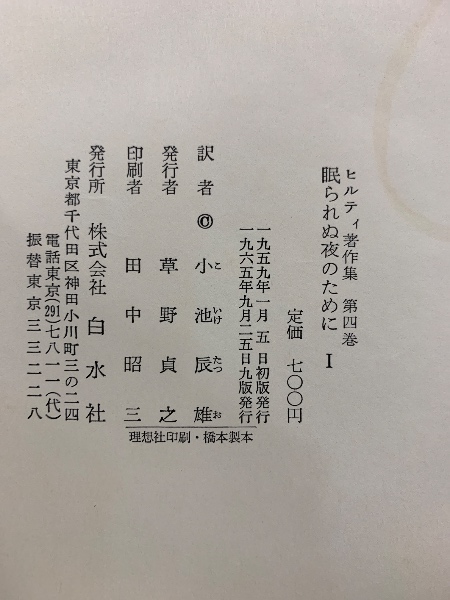 ヒルティ著作集 第四巻
眠られぬ夜のために Ⅰ
定価 七〇〇円
一九五九年一月五日初版発行
一九六五年九月二五日九版発行
訳者 © 小池辰雄
こ いけ たつ お
発行者 草野貞之
印刷者 田中昭三
発行所 株式会社 白水社
東京都千代田区神田小川町三の二四
電話東京(291)七八一一(代)
振替東京三三二二八
理想社印刷・橋本製本